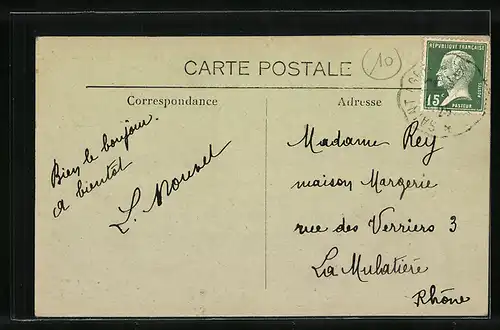 10
CARTE POSTALE
RÉPUBLIQUE FRANÇAISE
POSTES
15c
PASTEUR
SAINT
25
Correspondance
Bien le bonjour.
A bientôt
L.
Adresse
Madame Rey
maison Margerie
rue des Verriers 3
La Mulatière
Rhône